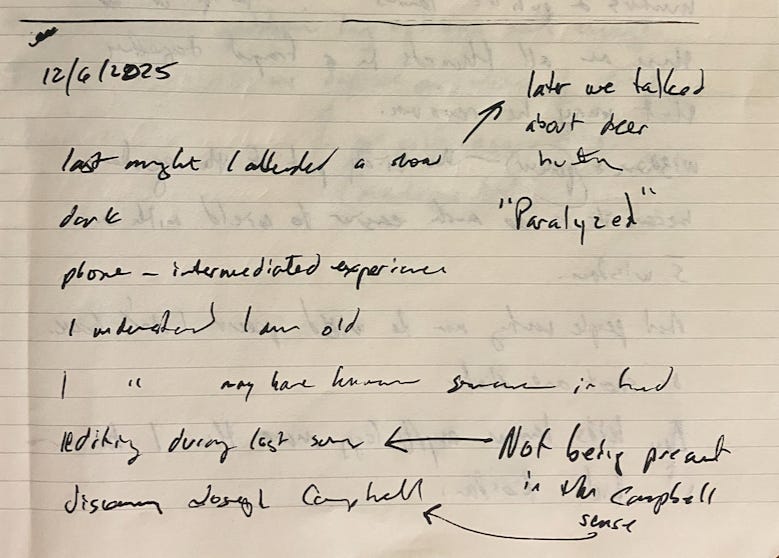 12/6/2025
later we talked
about deer
last night I attended a show
dark
"Paralyzed"
phone - intermediated experience
I understand I am old
I " may have known someone in band
editing during last song
Not being present
in the Campbell
sense
discussing Joseph Campbell